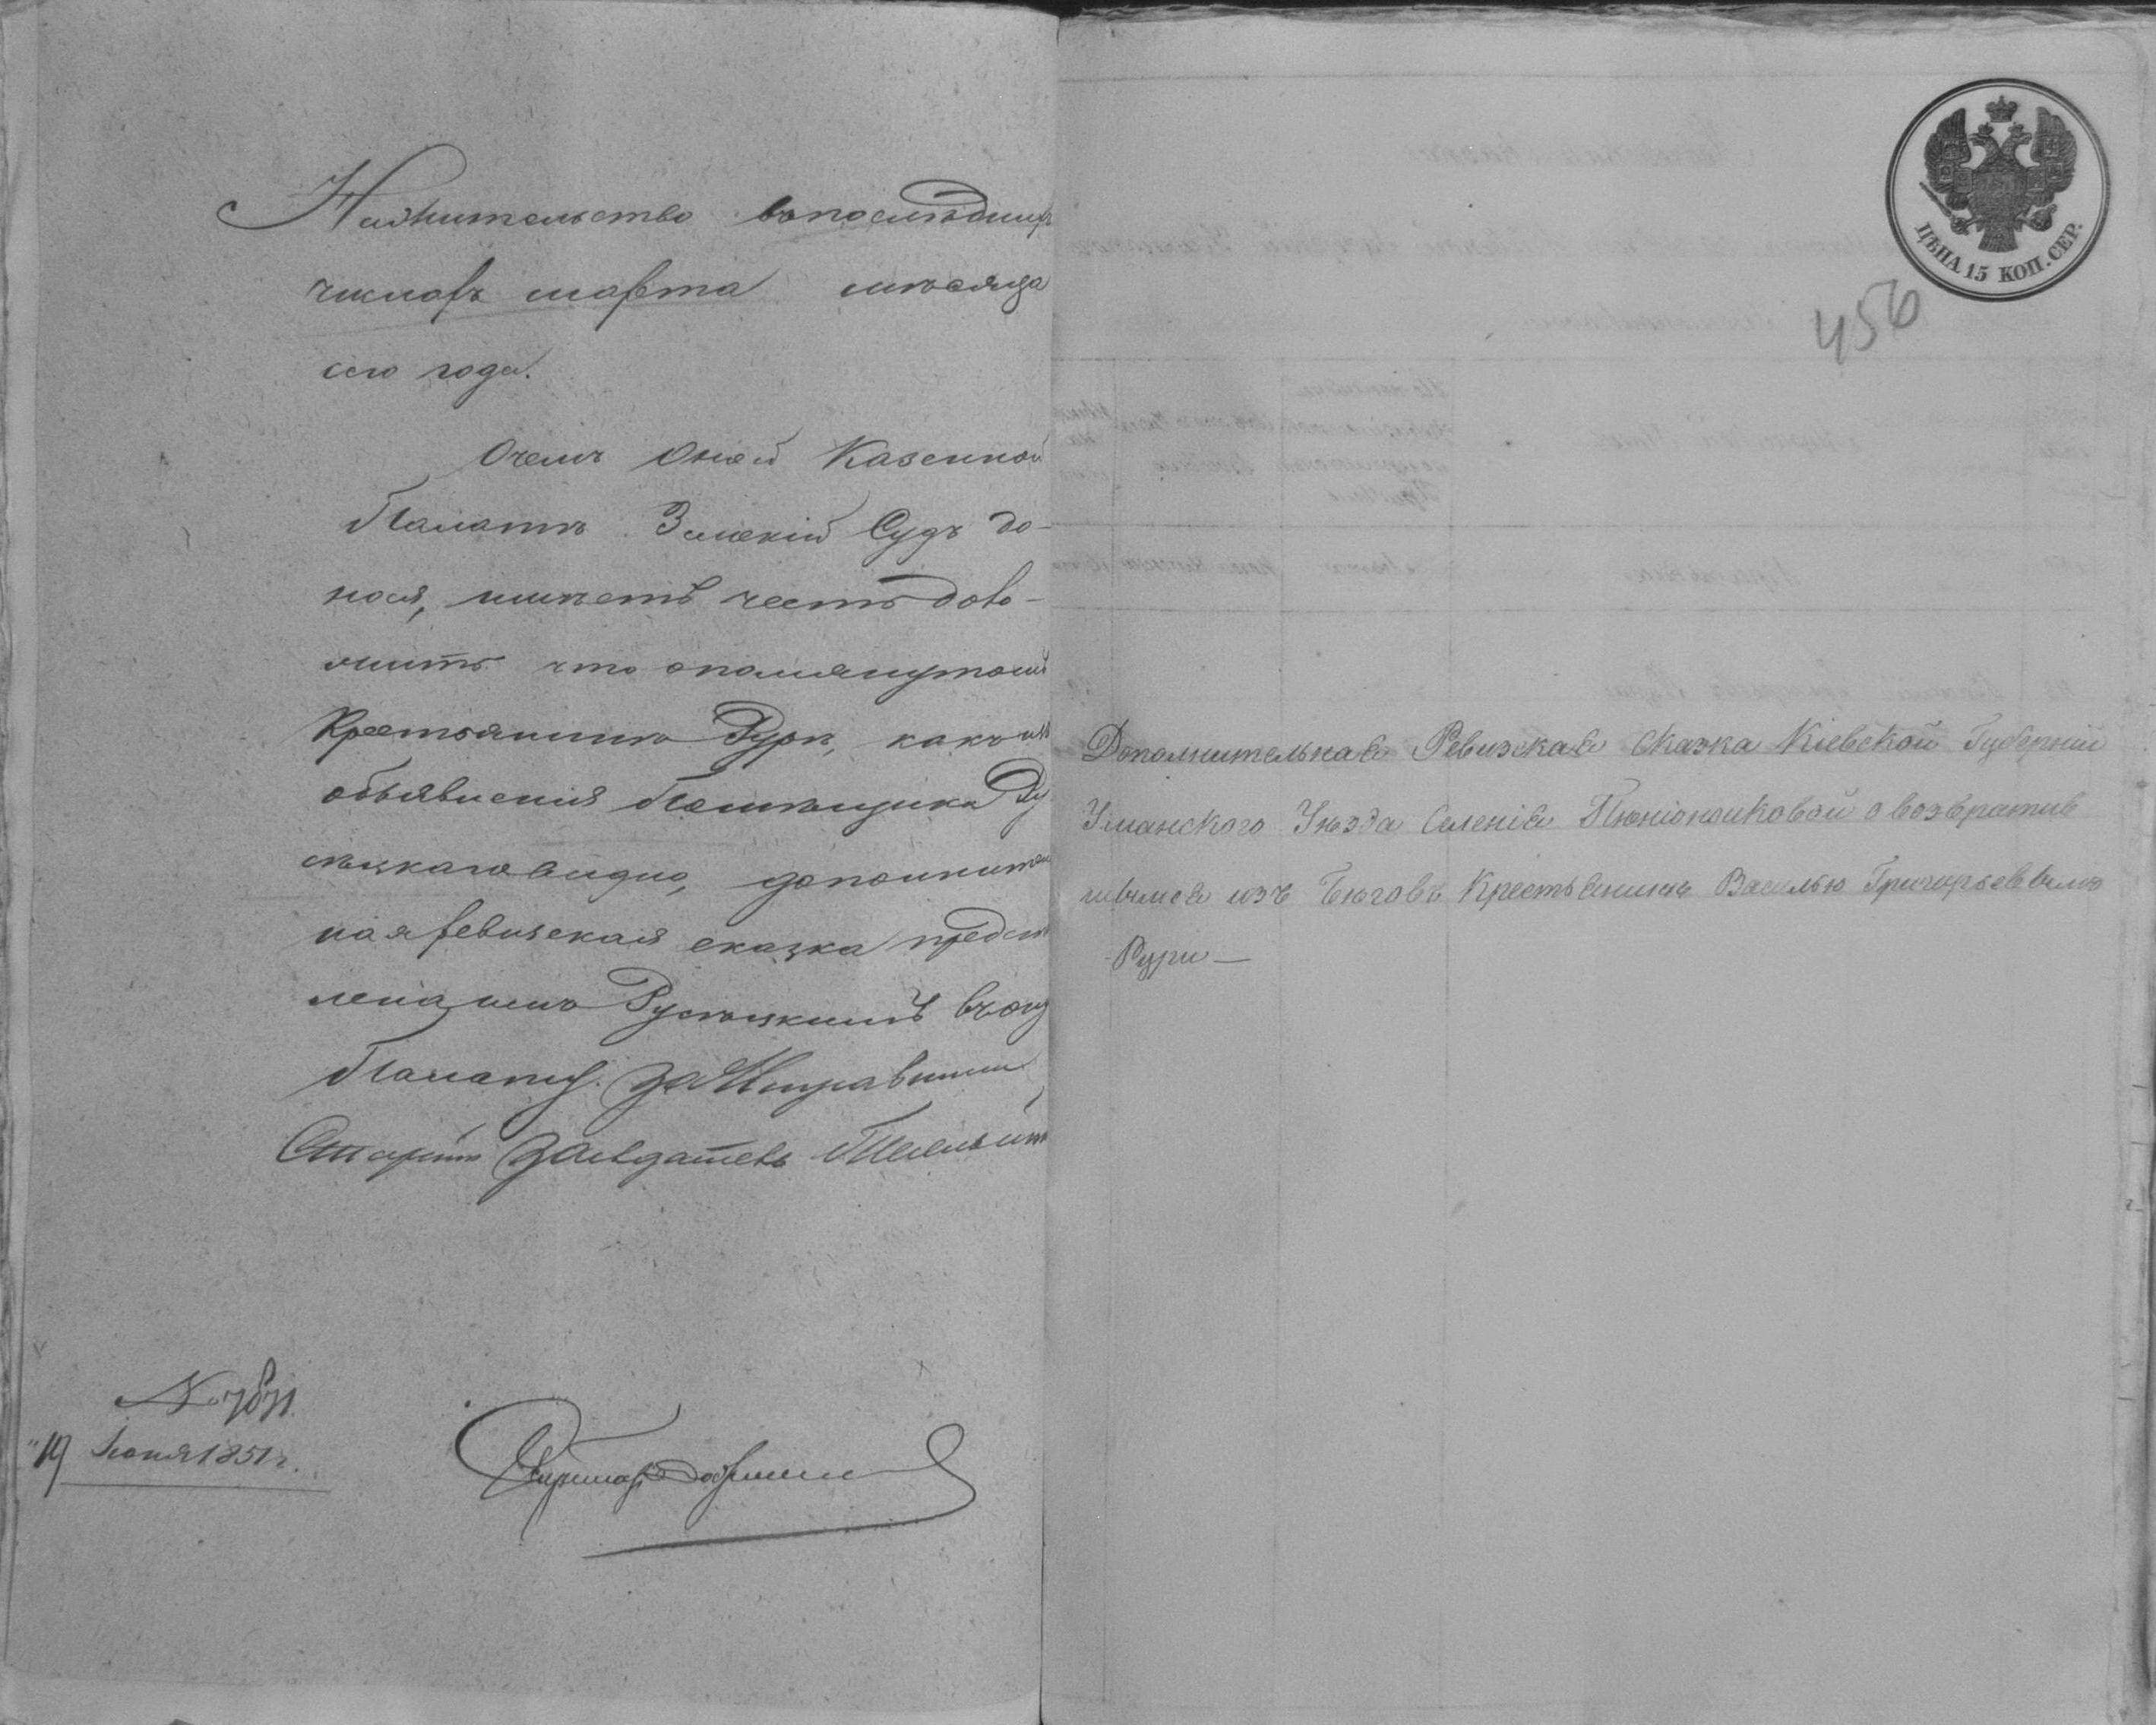 Нажительство впоследнихъ
числахъ марта месяца
сего года.
Очемъ Оной Казенной
Палатѣ Земскій Судъ до-
нося, имѣетъ честь доло-
жить что опомянутомъ
Крестьянинѣ Рурѣ, какъ изъ
объявленія Помѣщика Ру
сѣцкаго видно, дополнитель
ная ревизская сказка предста
влена имъ Русѣцкимъ въ ону
Палату. За Исправника
Старшій Засѣдатель
№ 7871
"19 Іюня 1851 г.
ЦѢНА 15 КОП. СЕР.
456
Дополнительная Ревизская Сказка Кіевской Губерніи
Уманского Уѣзда Селенія о возвратив
шымся изъ Бѣговъ Крестьянинѣ Василью Григорьеввымъ
Рури —